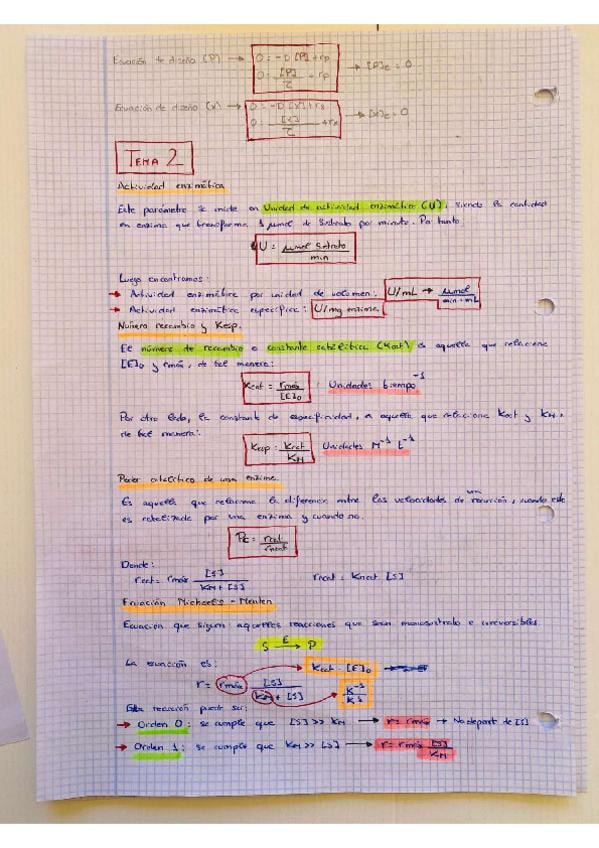 Ecuación de diseño (P) → 0 = -D [P] + rp → [P]e = 0
0 = [P]/τ + rp
Ecuación de diseño (X) → 0 = -D [X] + rx → [X]e = 0
0 = [X]/τ + rx
TEMA 2
Actividad enzimática
Este parámetro se mide en Unidad de actividad enzimática (U), siendo la cantidad
en enzima que transforma 1 μmol de sustrato por minuto. Por tanto:
U = μmol sustrato / min
Luego encontramos:
→ Actividad enzimática por unidad de volumen: U/mL → μmol / min·mL
→ Actividad enzimática específica: U/mg enzima
Número recambio y Kesp.
El número de recambio o constante catalítica (Kcat) es aquella que relaciona
[E]0 y rmáx, de tal manera:
Kcat = rmáx / [E]0 Unidades tiempo⁻¹
Por otro lado, la constante de especificidad, a aquella que relaciona Kcat y KM,
de tal manera:
Kesp = Kcat / KM Unidades M⁻¹ t⁻¹
Poder catalítico de una enzima.
Es aquella que relaciona la diferencia entre las velocidades de una reacción, cuando esta
es catalizada por una enzima y cuando no.
Pc = rcat / rnocat
Donde:
rcat = rmáx [S] / KM + [S] rnocat = Knocat [S]
Ecuación Michaelis - Menten
Ecuación que siguen aquellas reacciones que sean monosustrato e irreversibles.
S E→ P
La ecuación es: Kcat · [E]0
r = rmáx [S] / KM + [S]
Esta reacción puede ser:
→ Orden 0: se cumple que [S] >> KM → r = rmáx → No depende de [S]
→ Orden 1: se cumple que KM >> [S] → r = rmáx [S] / KM